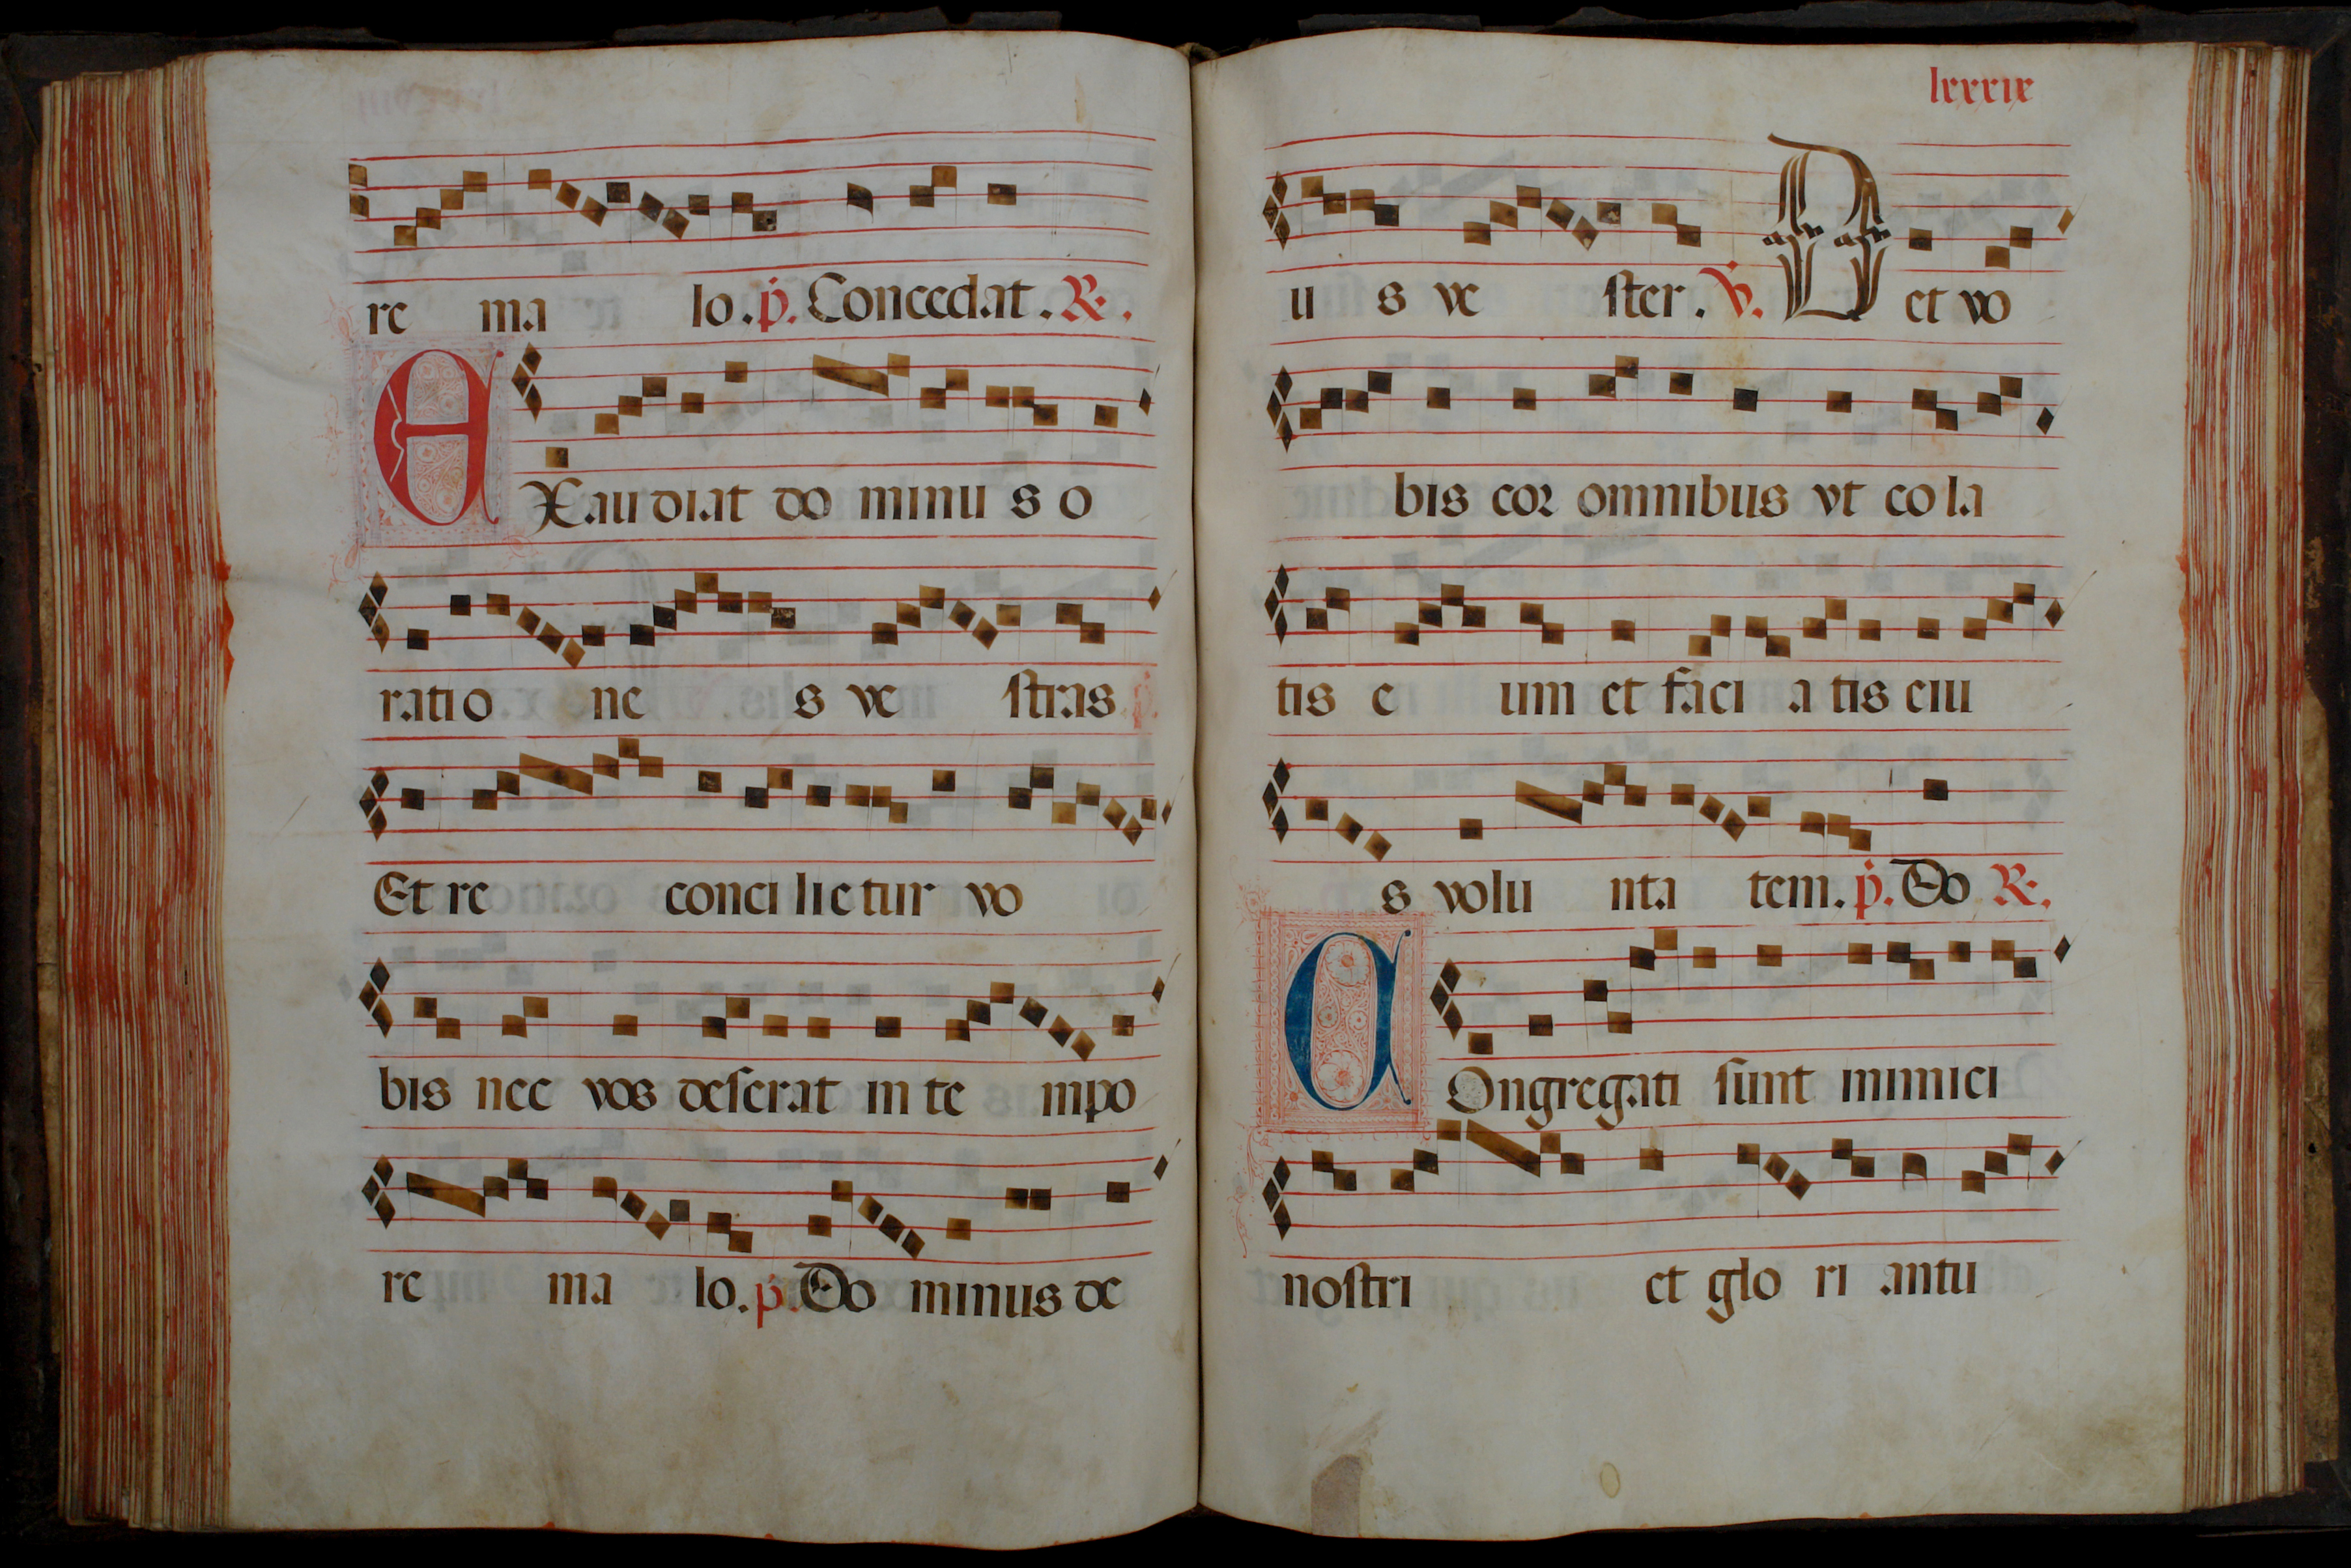 re ma lo. p. Concedat. R.
EXaudiat do minu s o
ratio ne s ve stras p.
Et re conci lie tur vo
bis nec vos deserat in te mpo
re ma lo. p. Do minus de
lxxxix
u s ve ster. V. Det vo
bis cor omnibus vt co la
tis e um et faci a tis eiu
s volu nta tem. p. Do R.
COngregati sunt inimici
nostri et glo ri antu